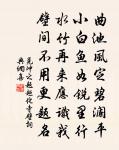 曲池風定碧瀾平
小白魚如銳星行
水竹再來應識我
壁間不用更題名
晁沖之題超化寺壁詞